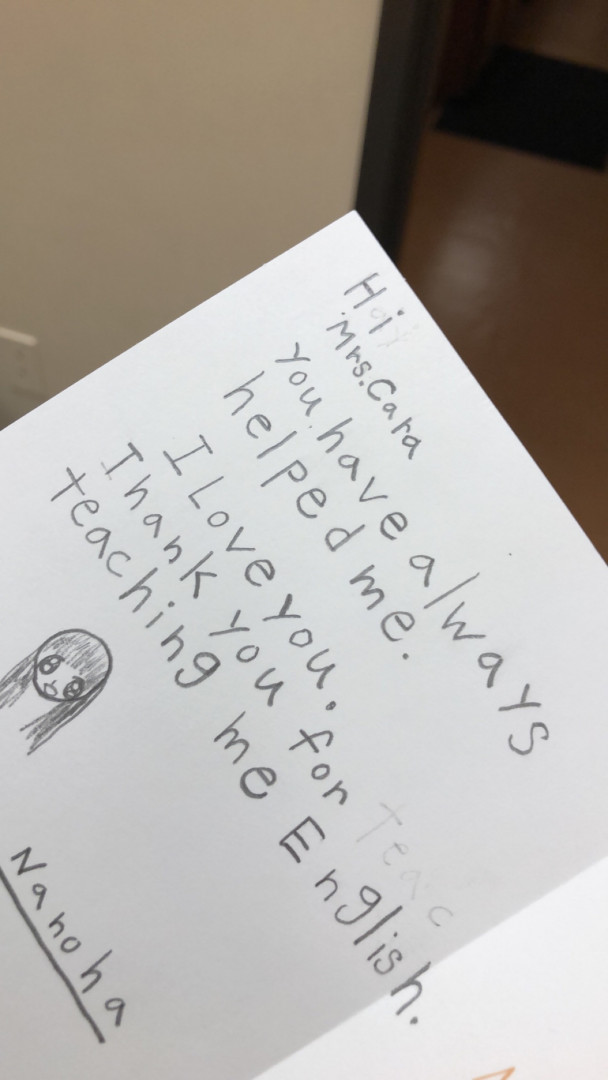 Hi
Mrs.Cara
you have always
helped me.
I Love you.
Thank you for teac
teaching me English.
Nanoha